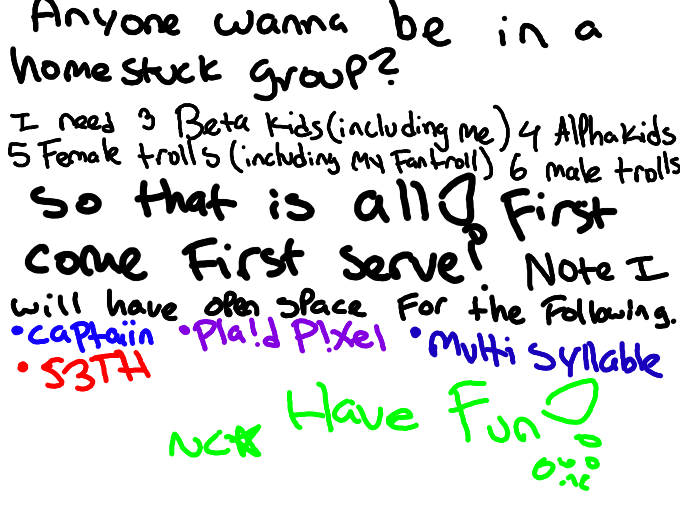 Anyone wanna be in a
homestuck group?
I need 3 Beta kids (including me) 4 Alphakids
5 Female trolls (including My Fantroll) 6 male trolls
So that is all! First
come First serve! Note I
will have open space For the Following.
•captaiin •Pla!d P!xel •Multi Syllable
•S3TH
Have Fun!
NC☆